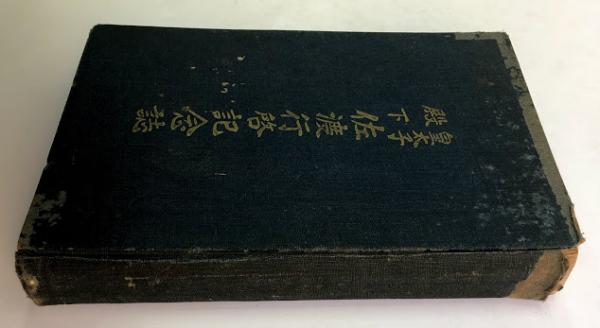 皇太子殿下佐渡行啓記念誌